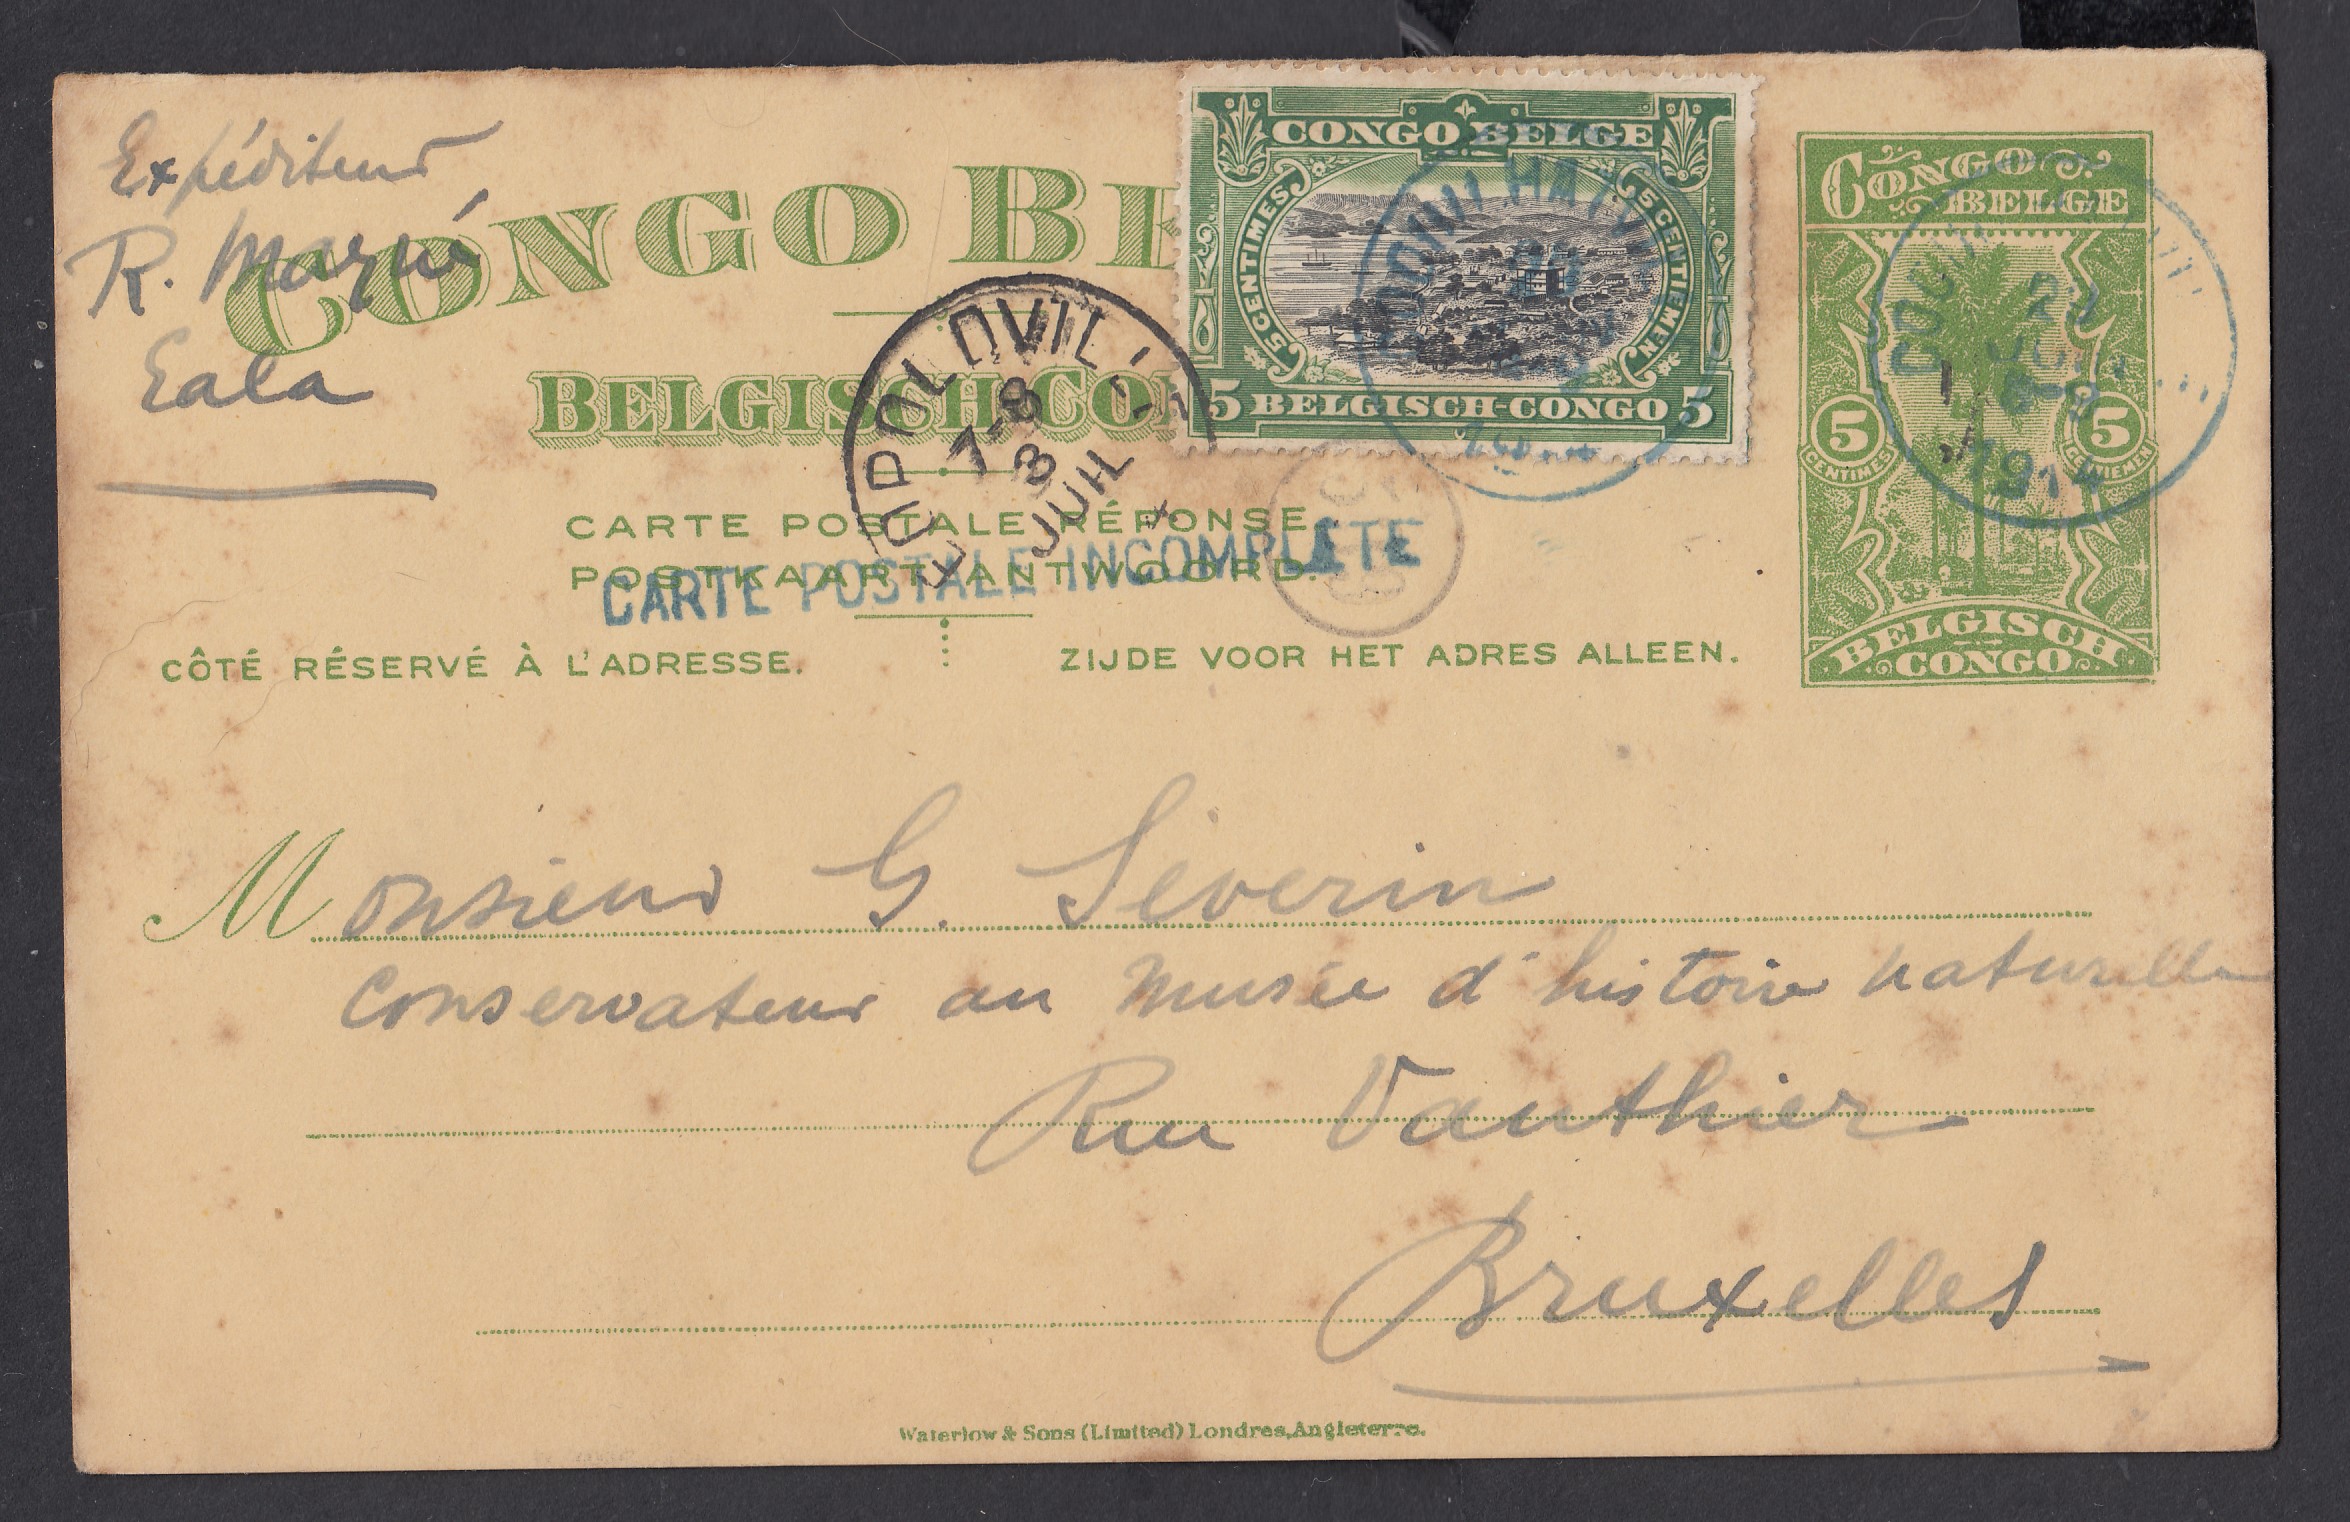 Expéditeur
R. Mazui
Eala
CONGO BE
BELGISCH CON
CONGO BELGE
5 CENTIMES
5 CENTIEMEN
5 BELGISCH-CONGO 5
CONGO
BELGE
5 CENTIMES
5 CENTIEMEN
BELGISCH
CONGO
7-8
3
JUIL
8-9
1914
CARTE POSTALE RÉPONSE.
POSTKAART ANTWOORD.
CARTE POSTALE INCOMPLÈTE
CÔTÉ RÉSERVÉ À L'ADRESSE.
ZIJDE VOOR HET ADRES ALLEEN.
Monsieur G. Séverin
Conservateur au Musée d'histoire naturelle
Rue Vauthier
Bruxelles
Waterlow & Sons (Limited) Londres, Angleterre.